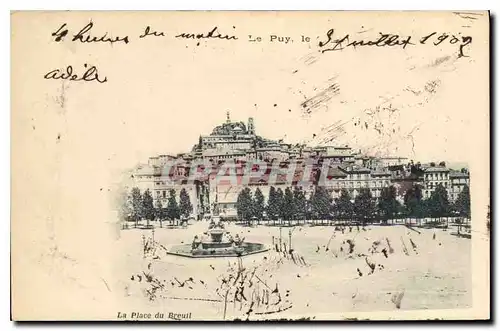 4 heures du matin Le Puy, le 3 juillet 1902
adèle
CARTHAGRAPHIE
La Place du Breuil